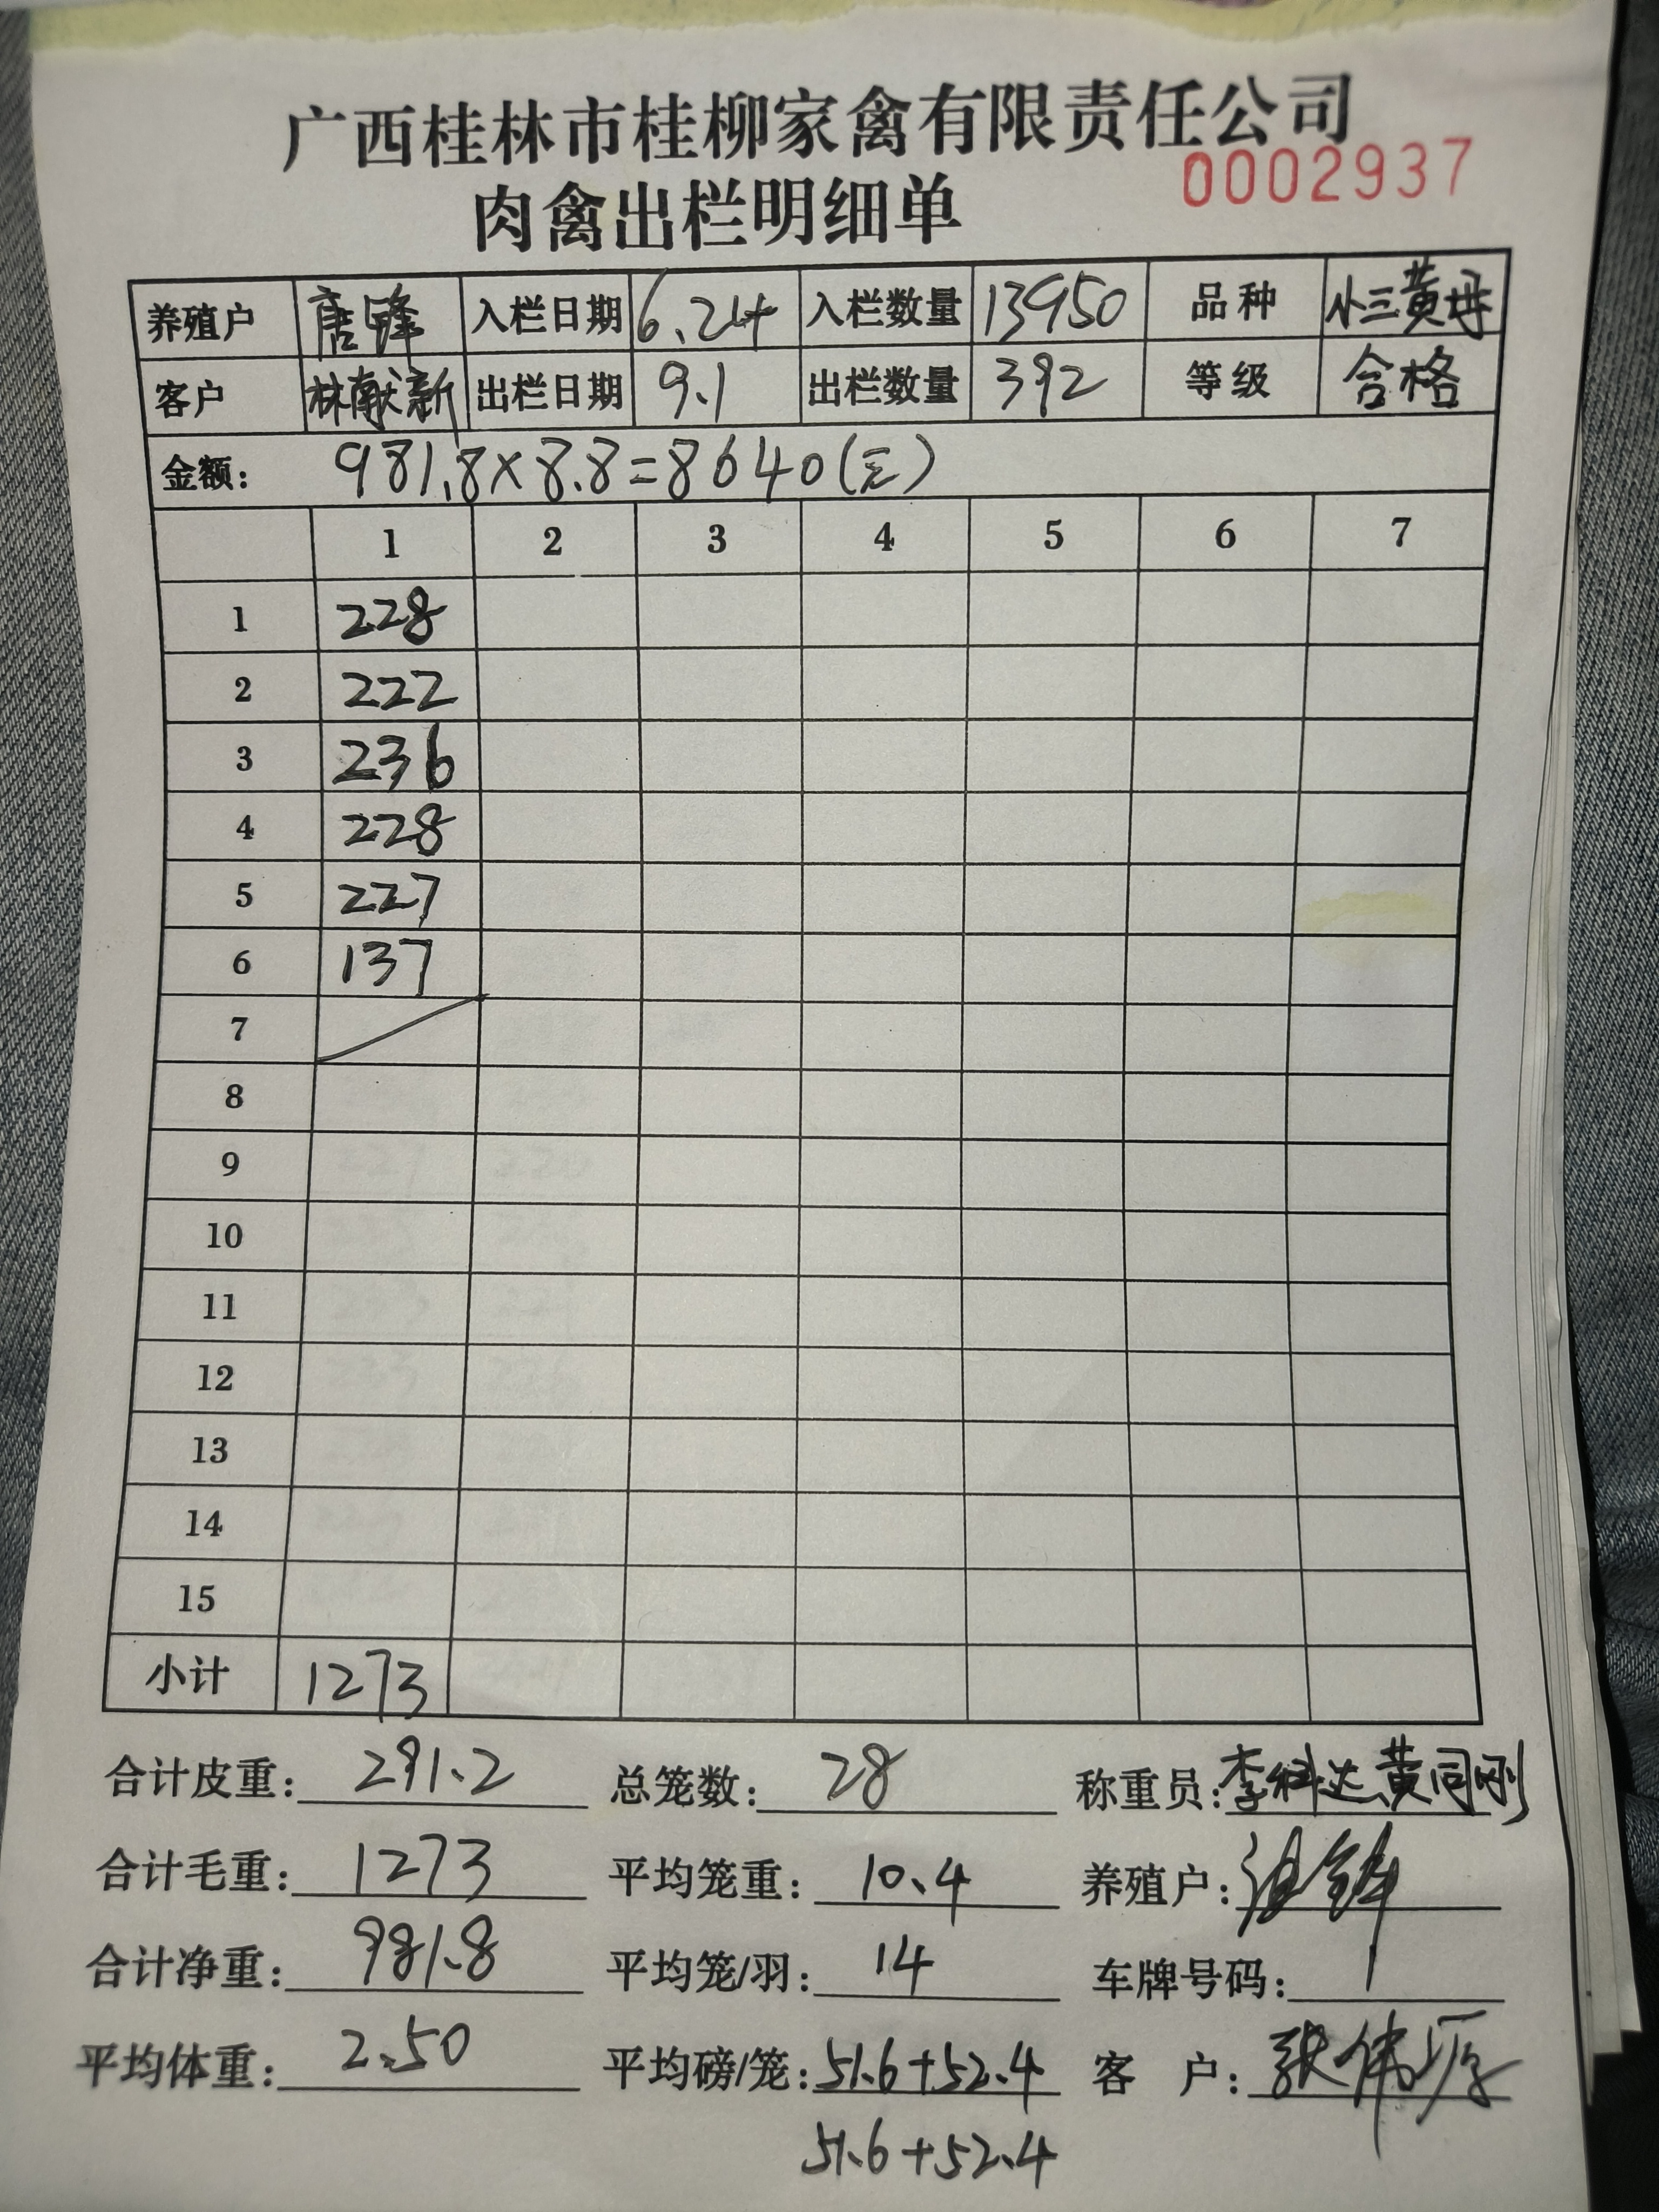 广西桂林市桂柳家禽有限责任公司
0002937
肉禽出栏明细单
养殖户 唐锋 入栏日期 6.24 入栏数量 13950 品种 小三黄母
客户 林献新 出栏日期 9.1 出栏数量 392 等级 合格
金额: 981.8×8.8=8640(元)
1 2 3 4 5 6 7
1 228
2 222
3 236
4 228
5 227
6 137
7
8
9
10
11
12
13
14
15
小计 1273
合计皮重: 291.2 总笼数: 28 称重员: 李科达 黄同刚
合计毛重: 1273 平均笼重: 10.4 养殖户:
合计净重: 981.8 平均笼/羽: 14 车牌号码: /
平均体重: 2.50 平均磅/笼: 51.6+52.4 客 户: 张伟
51.6+52.4